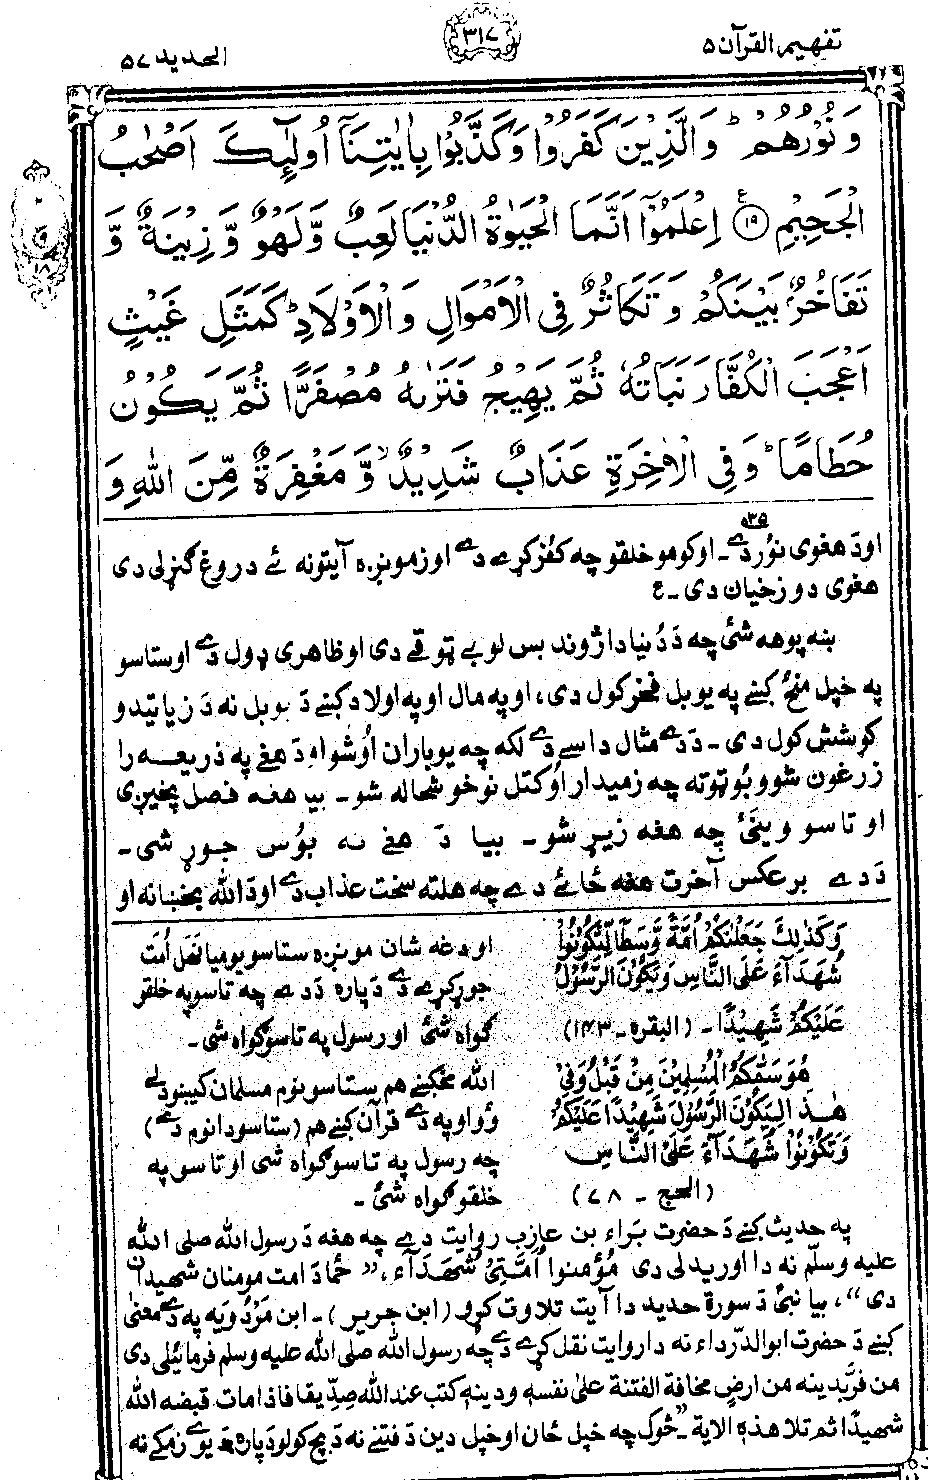 تفهيم القرآن ۵
۳۱۷
الحديد ۵۷
وَنُوْرُهُمْ ؕ وَالَّذِيْنَ كَفَرُوْا وَكَذَّبُوْا بِاٰيٰتِنَاۤ اُولٰٓئِكَ اَصْحٰبُ
الْجَحِيْمِ ۱۹ ع اِعْلَمُوْۤا اَنَّمَا الْحَيٰوةُ الدُّنْيَا لَعِبٌ وَّلَهْوٌ وَّزِيْنَةٌ وَّ
تَفَاخُرٌۢ بَيْنَكُمْ وَتَكَاثُرٌ فِى الْاَمْوَالِ وَالْاَوْلَادِ ؕ كَمَثَلِ غَيْثٍ
اَعْجَبَ الْكُفَّارَ نَبَاتُهٗ ثُمَّ يَهِيْجُ فَتَرٰىهُ مُصْفَرًّا ثُمَّ يَكُوْنُ
حُطَامًا ؕ وَفِى الْاٰخِرَةِ عَذَابٌ شَدِيْدٌ ۙ وَّمَغْفِرَةٌ مِّنَ اللّٰهِ وَ
اودَ هغوى نوُر دے ۳۵۔ اوكومو خلقو چه كفُر كړے دے او زمونږه آيتونه ئے دروغ گنړلى دى
هغوى دوزخيان دى ۔ ع
ښه پوهه شئ چه دَ دُنيا دا ژوند بس لوبے ټوقے دى او ظاهرى ډول دے او ستاسو
په خپل منځ كښے په يو بل فخر كول دى، او په مال او په اولاد كښے دَ يو بل نه دَ زياتيدو
كوشش كول دى ۔ دَ دے مثال داسے دے لكه چه يو باران اوُشو او دَ هغے په ذريعه را
زرغون شوو بُوټو ته چه زميدار اوُكتل نو خوشحاله شو ۔ بيا هغه فصل پخيږى
او تاسو وينئ چه هغه زيړ شو ۔ بيا دَ هغے نه بوُس جوړ شى ۔
دَ دے برعكس آخرت هغه ځائے دے چه هلته سخت عذاب دے اودَ الله بخښنه او
وَكَذٰلِكَ جَعَلْنٰكُمْ اُمَّةً وَّسَطًا لِّتَكُوْنُوْا
شُهَدَآءَ عَلَى النَّاسِ وَيَكُوْنَ الرَّسُوْلُ
عَلَيْكُمْ شَهِيْدًا ۔ (البقره ۔ ۱۴۳)
او دغه شان مونږه ستاسو يو ميانه أمّت
جوړ كړے دے دَپاره دَ دے چه تاسو په خلقو
گواه شئ او رسول په تاسو گواه شى ۔
هُوَ سَمّٰكُمُ الْمُسْلِمِيْنَ مِنْ قَبْلُ وَفِىْ
هٰذَا لِيَكُوْنَ الرَّسُوْلُ شَهِيْدًا عَلَيْكُمْ
وَتَكُوْنُوْا شُهَدَآءَ عَلَى النَّاسِ
(الحج ۔ ۷۸)
الله مخكښے هم ستاسو نوم مسلمان كيښودلے
وُو او په دے قرآن كښے هم (ستاسو دا نوم دے)
چه رسول په تاسو گواه شى او تاسو په
خلقو گواه شئ ۔
په حديث كښے دَ حضرت بَراء بن عازب روايت دے چه هغه دَ رسول الله صلى الله
عليه وسلّم نه دا اوريدلى دى مُؤمنوا اُمَّتِىْ شُهَدَآء، “ځما دَ امت مومنان شهيدان
دى”، بيا نبىؐ دَ سورة حديد دا آيت تلاوت كړو (ابن جرير) ۔ ابن مَرْدُوَيه په دے معنىٰ
كښے دَ حضرت ابوالدّرداء نه دا روايت نقل كړے دے چه رسول الله صلى الله عليه وسلم فرمائيلى دى
من فرّ بدينه من ارضٍ مخافة الفتنة علىٰ نفسه ودينه كتب عند الله صِدّيقا فاذا مات قبضه الله
شهيدًا ثم تلا هذه الاية ۔ “څوك چه خپل ځان او خپل دين دَ فتنے نه دَ بچ كولو دَپاره دَ يوے زمكے نه